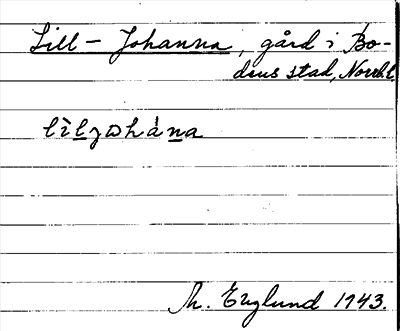 Lill-Johanna, gård i Bo-
dens stad, Norrb.
lìl̲jɷhána
Th. Englund 1943.